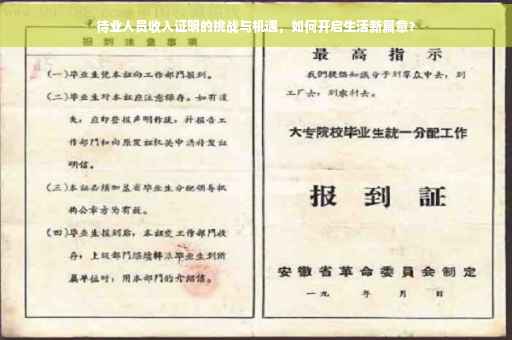 待业人员收入证明的挑战与机遇，如何开启生活新篇章？
报到注意事项
(一)毕业生凭本证向工作部门报到。
(二)毕业生对本证应注意保存。如有遗
失，应即登报声明作废，并报告工
作部门和向原发证机关申请补发证
明信。
(三)本证必须加盖省毕业生分配领导机
构公章方为有效。
(四)毕业生报到后，本证交工作部门收
存，上级部门继续转派毕业生到所
属单位时，用本部门的介绍信。
最高指示
我们提倡知识分子到群众中去，到
工厂去，到农村去。
大专院校毕业生统一分配工作
报到证
安徽省革命委员会制定
一九 年 月 日